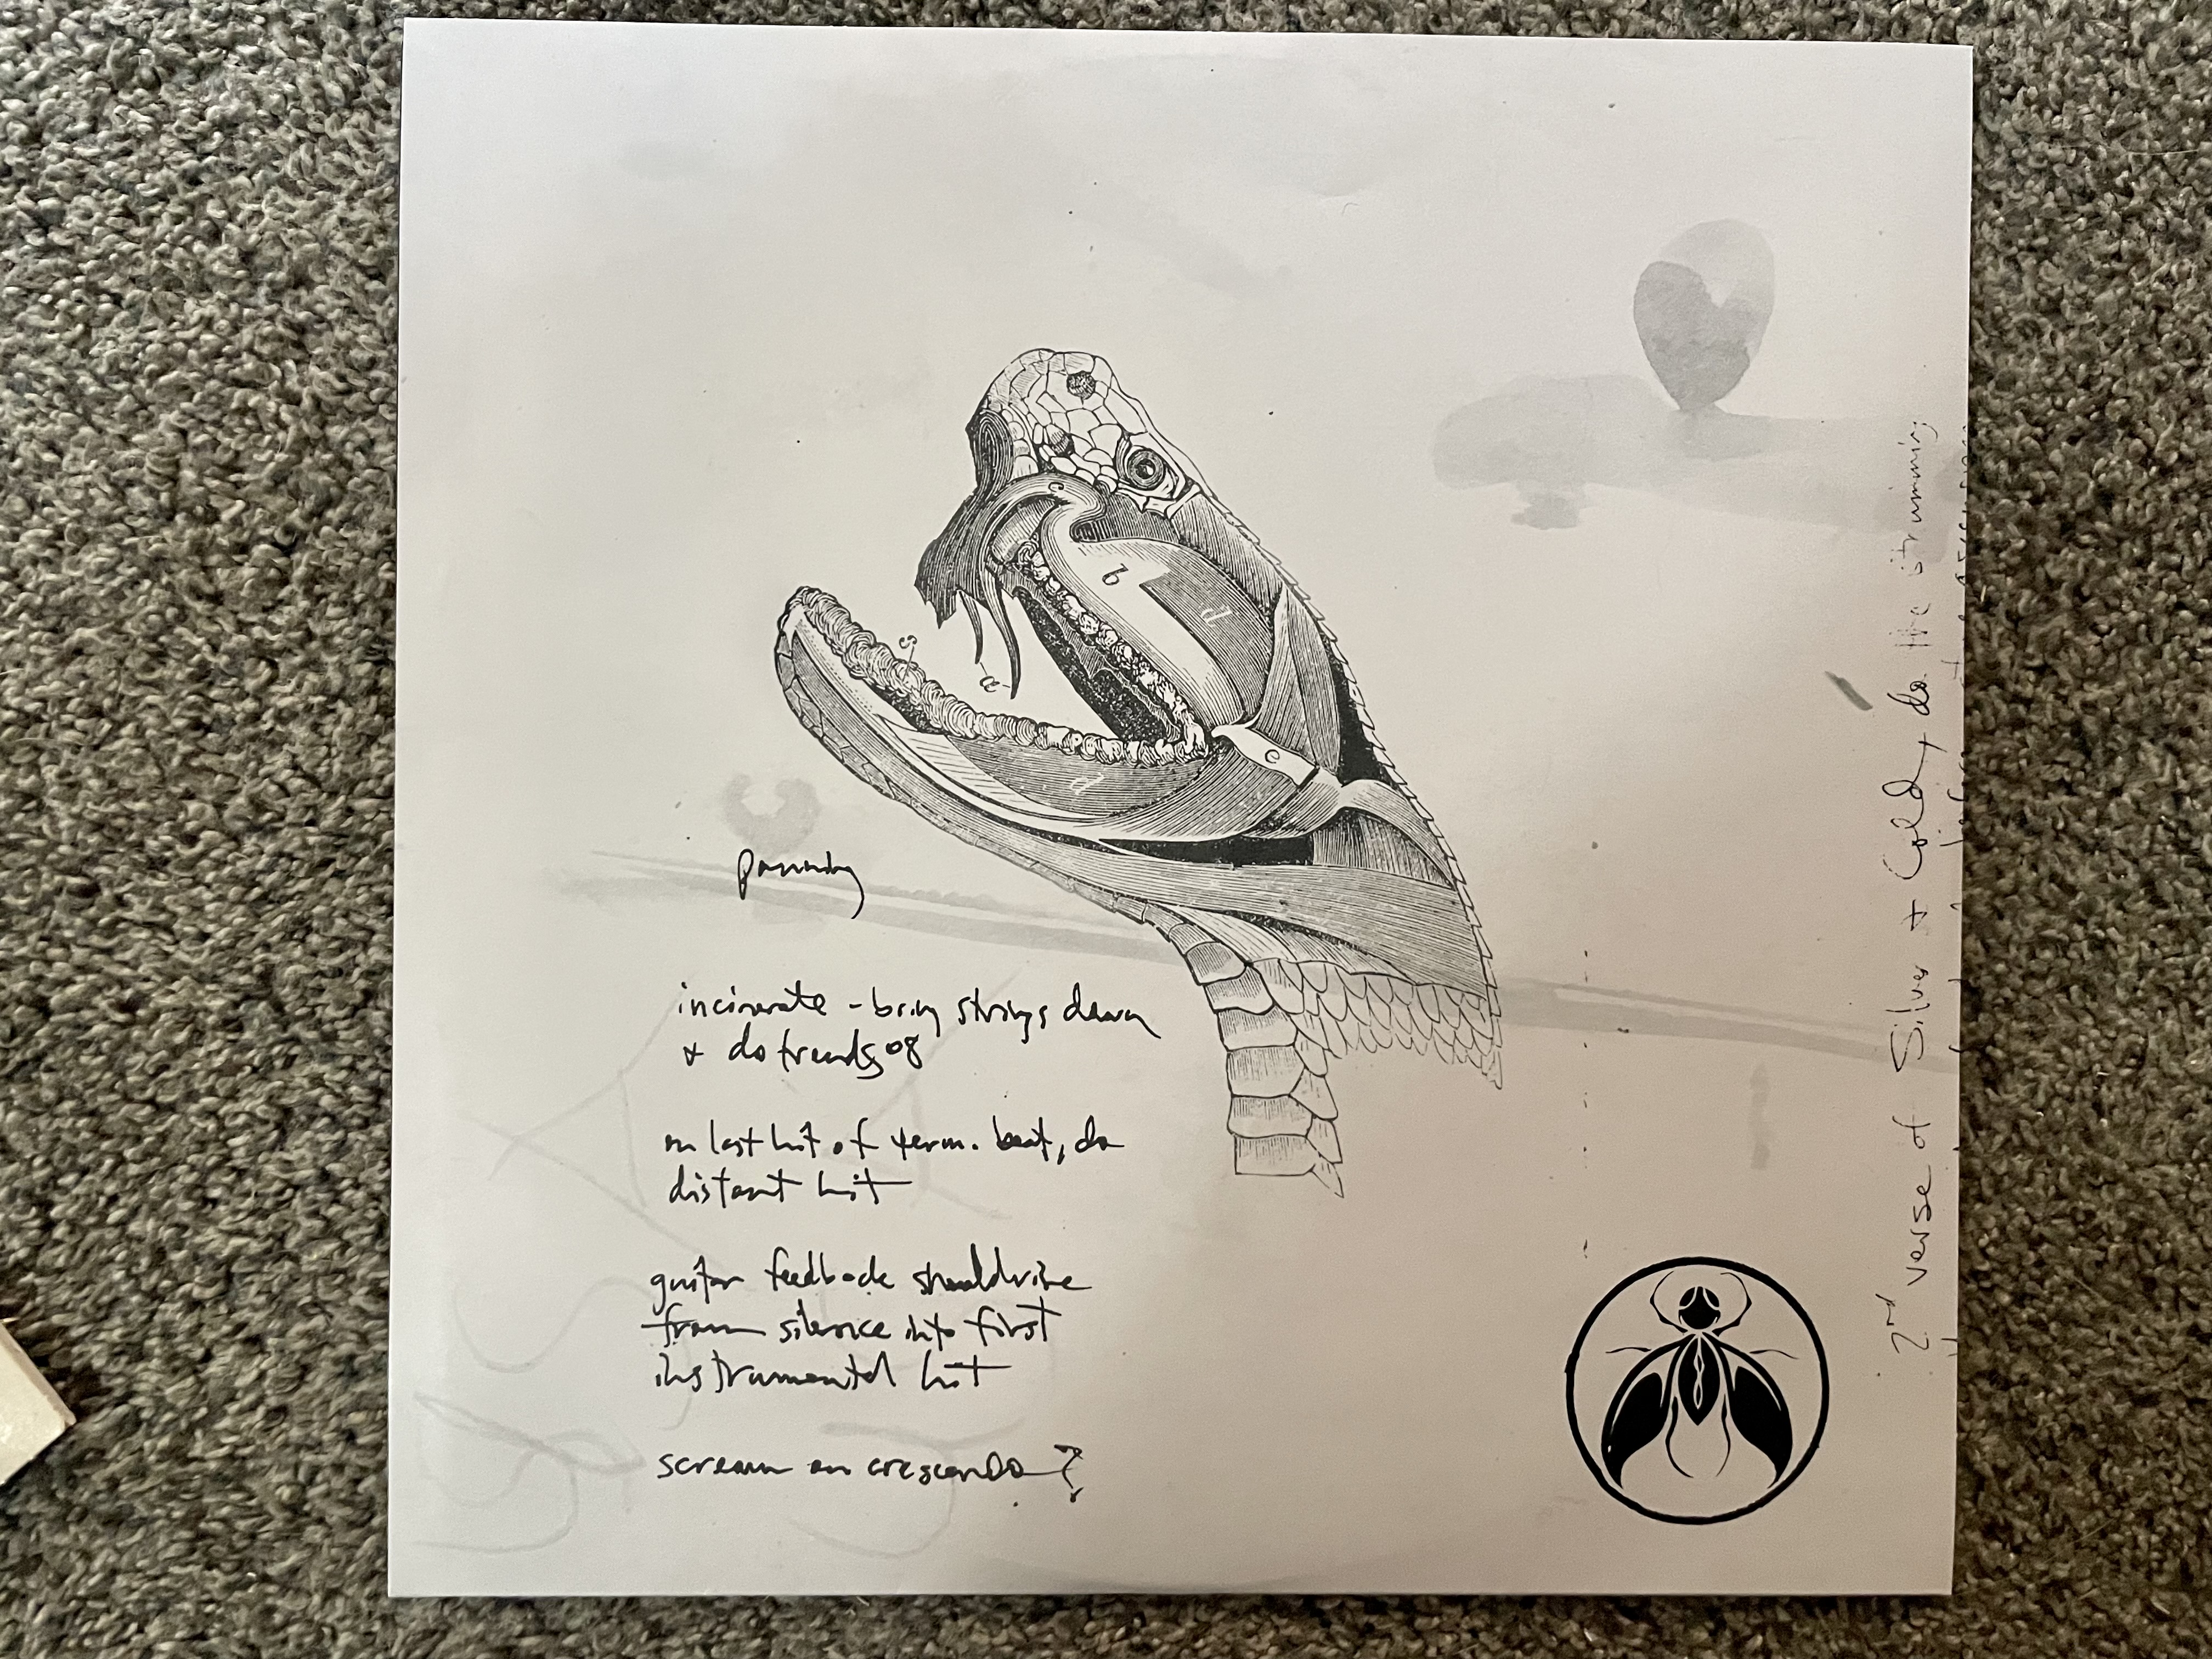 panning
incinerate - bring strings down
+ do trends 08
on last hit of term. beat, do
distant hit
guitar feedback should rise
from silence into first
instrumental hit
scream on crescendo?
2nd verse of Silver & Cold, do the strumming
a
b
c
c
d
d
s